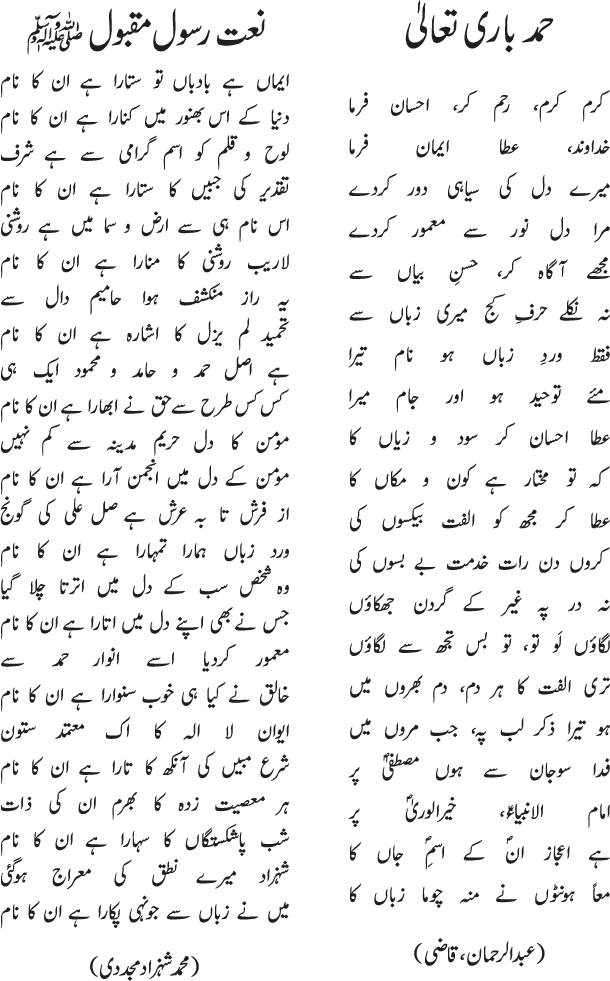 حمد باری تعالیٰ
کرم کرم، رحم کر، احسان فرما
خداوند، عطا ایمان فرما
میرے دل کی سیاہی دور کردے
مرا دل نور سے معمور کردے
مجھے آگاہ کر، حسنِ بیاں سے
نہ نکلے حرفِ کج میری زباں سے
فقط وردِ زباں ہو نام تیرا
مئے توحید ہو اور جام میرا
عطا احسان کر سود و زیاں کا
کہ تو مختار ہے کون و مکاں کا
عطا کر مجھ کو الفت بیکسوں کی
کروں دن رات خدمت بے بسوں کی
نہ در پہ غیر کے گردن جھکاؤں
لگاؤں لَو تو، تو بس تجھ سے لگاؤں
تری الفت کا ہر دم، دم بھروں میں
ہو تیرا ذکر لب پہ، جب مروں میں
فدا سوجان سے ہوں مصطفیٰؐ پر
امام الانبیاءؑ، خیرالوریٰؐ پر
ہے اعجاز انؐ کے اسمِؐ جاں کا
معاً ہونٹوں نے منہ چوما زباں کا
(عبدالرحمان، قاضی)
نعت رسول مقبول ﷺ
ایماں ہے بادباں تو ستارا ہے ان کا نام
دنیا کے اس بھنور میں کنارا ہے ان کا نام
لوح و قلم کو اسم گرامی سے ہے شرف
تقدیر کی جبیں کا ستارا ہے ان کا نام
اس نام ہی سے ارض و سما میں ہے روشنی
لاریب روشنی کا منارا ہے ان کا نام
یہ راز منکشف ہوا حامیم دال سے
تحمید لم یزل کا اشارہ ہے ان کا نام
ہے اصل حمد و حامد و محمود ایک ہی
کس کس طرح سے حق نے ابھارا ہے ان کا نام
مؤمن کا دل حریم مدینہ سے کم نہیں
مؤمن کے دل میں انجمن آرا ہے ان کا نام
از فرش تا بہ عرش ہے صل علیٰ کی گونج
ورد زباں ہمارا تمہارا ہے ان کا نام
وہ شخص سب کے دل میں اترتا چلا گیا
جس نے بھی اپنے دل میں اتارا ہے ان کا نام
معمور کردیا اسے انوار حمد سے
خالق نے کیا ہی خوب سنوارا ہے ان کا نام
ایوان لا الہ کا اک معتمد ستون
شرع مبیں کی آنکھ کا تارا ہے ان کا نام
ہر معصیت زدہ کا بھرم ان کی ذات
شب پاشکستگاں کا سہارا ہے ان کا نام
شہزاد میرے نطق کی معراج ہوگئی
میں نے زباں سے جونہی پکارا ہے ان کا نام
(محمد شہزاد مجددی)